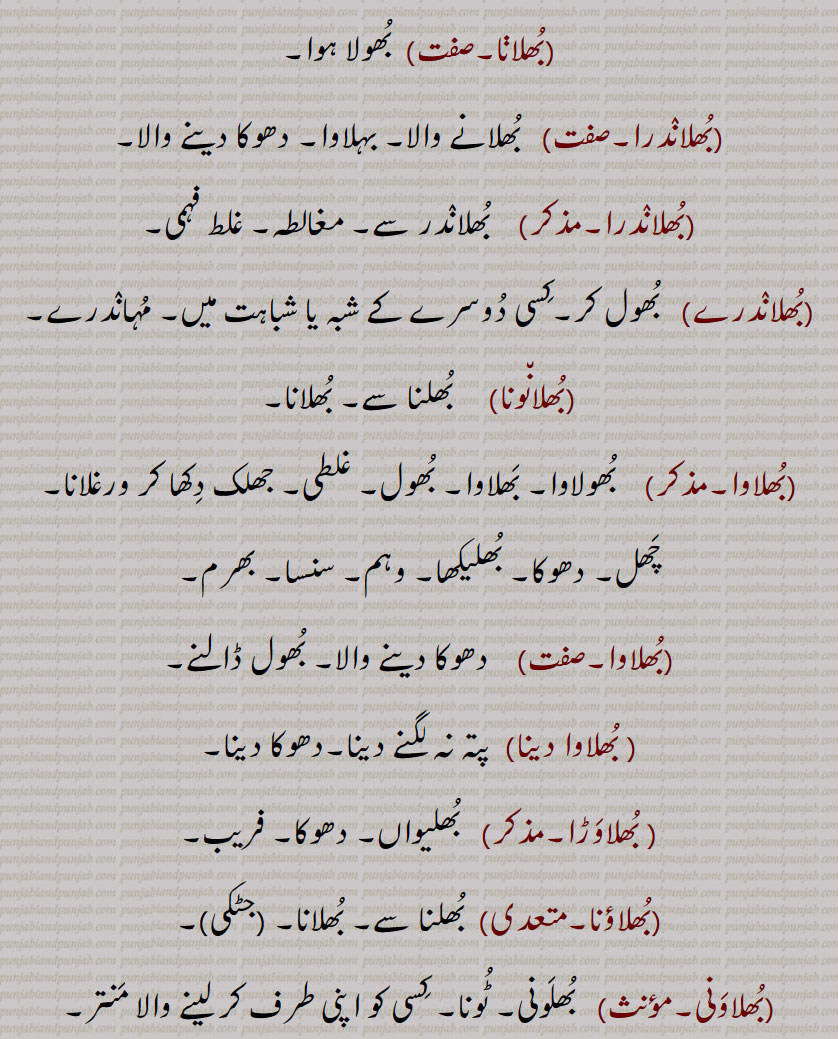 (بُھلانا۔صفت) بُھولا ہوا۔
(بُھلان٘درا۔صفت) بُھلانے والا۔ بہلاوا۔ دھوکا دینے والا۔
(بُھلان٘درا۔مذکر) بُھلان٘در سے۔ مغالطہ۔ غلط فہمی۔
(بُھلان٘درے) بُھول کر۔کِسی دُوسرے کے شبہ یا شباہت میں۔ مُہان٘درے۔
(بُھلانّونا) بُھلنا سے۔ بُھلانا۔
(بُھلاوا۔مذکر) بُھولاوا۔ بَھلاوا۔ بُھول۔ غلطی۔ جھلک دِکھا کر ورغلانا۔
چَھل۔ دھوکا۔ بُھلیکھا۔ وہم۔ سنسا۔ بھرم۔
(بُھلاوا۔صفت) دھوکا دینے والا۔ بُھول ڈالنے۔
( بُھلاوا دینا) پتہ نہ لگنے دینا۔دھوکا دینا۔
( بُھلاوَڑا۔مذکر) بُھلیواں۔ دھوکا۔ فریب۔
(بُھلاؤنا۔متعدی) بُھلنا سے۔ بُھلانا۔ (جٹکی)۔
(بُھلاوَنی۔مؤنث) بُھلَونی۔ ٹُونا۔ کِسی کو اپنی طرف کر لینے والا مَنتر۔